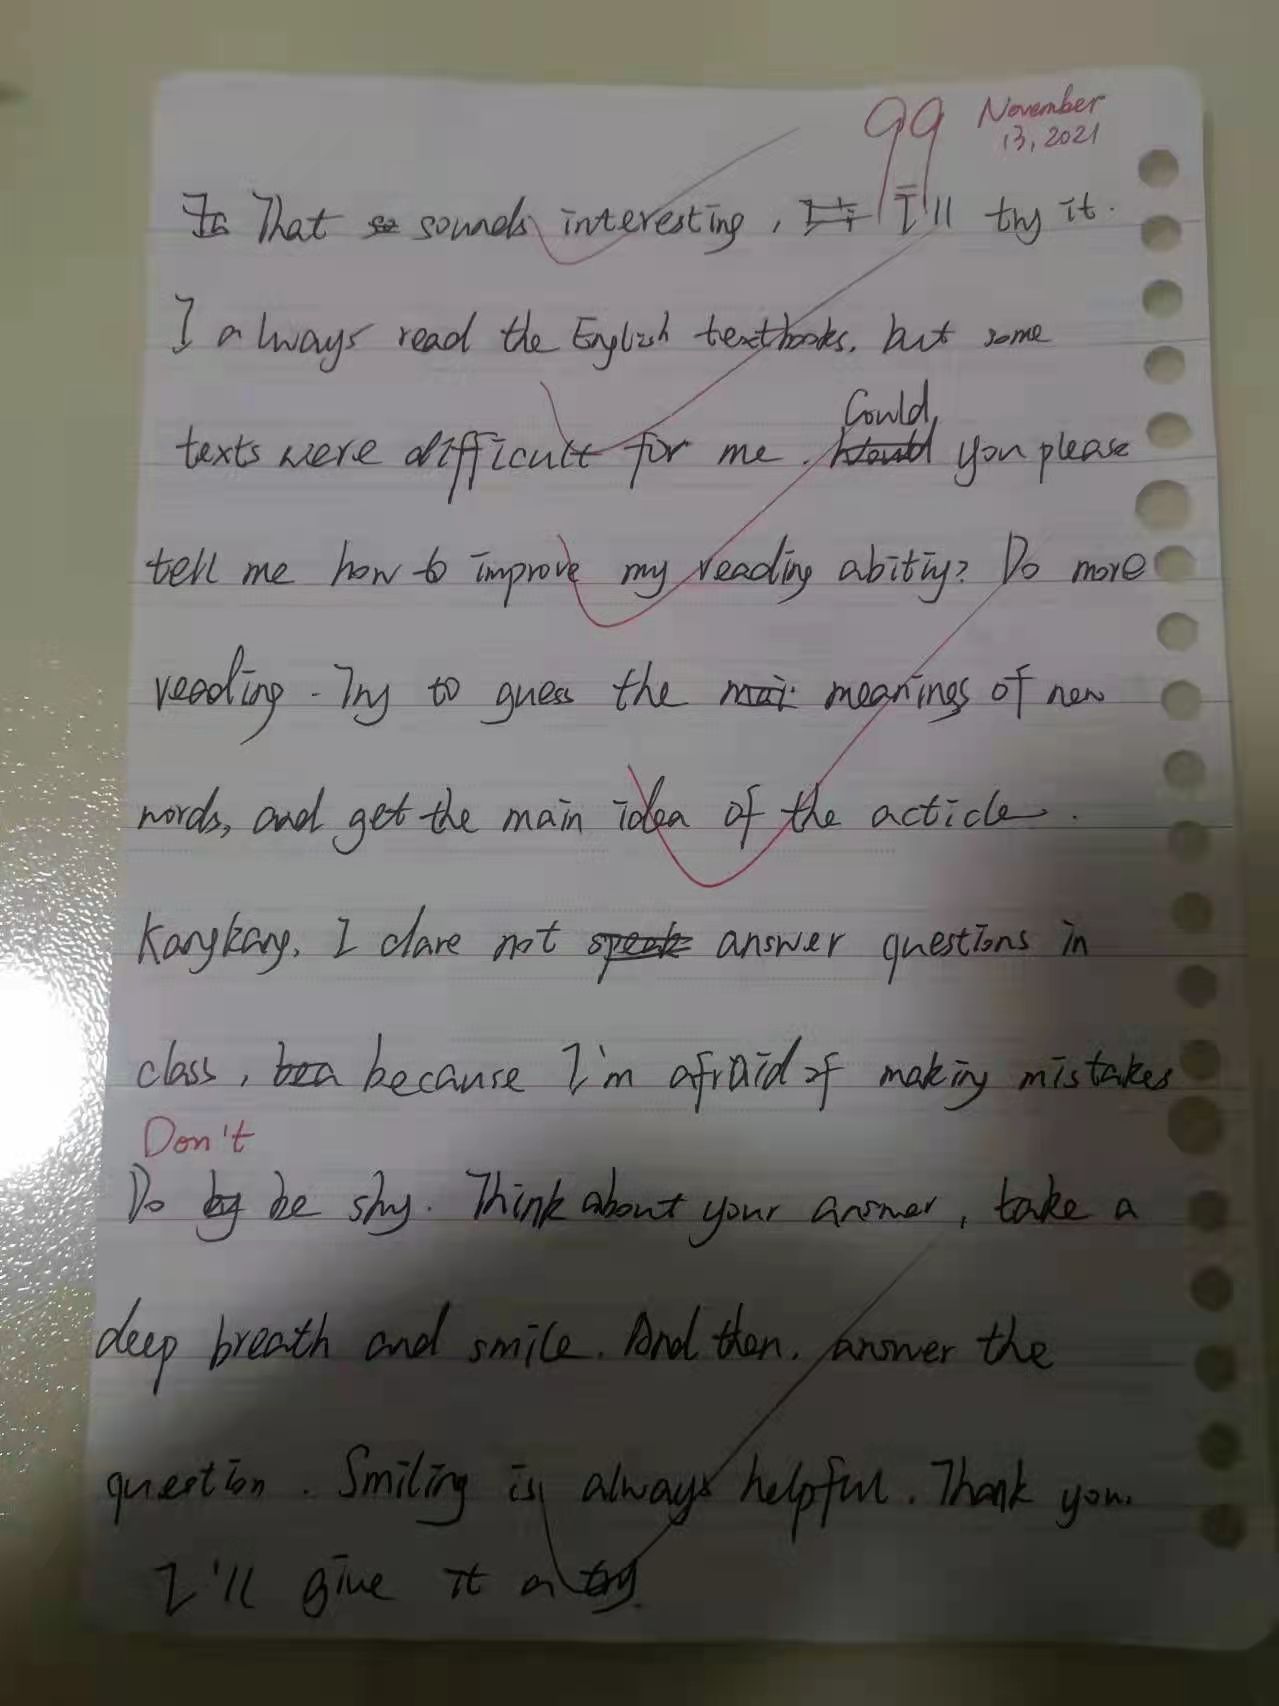 99 November
13, 2021
That sounds interesting, I'll try it.
I always read the English textbooks, but some
Could
texts were difficult for me. Would you please
tell me how to improve my reading abitiy? Do more
reading. Try to guess the meanings of new
words, and get the main idea of the acticle.
Kangkang, I dare not speak answer questions in
class, because I'm afraid of making mistakes
Don't
Do be shy. Think about your answer, take a
deep breath and smile. And then, answer the
question. Smiling is always helpful. Thank you.
I'll give it a try.